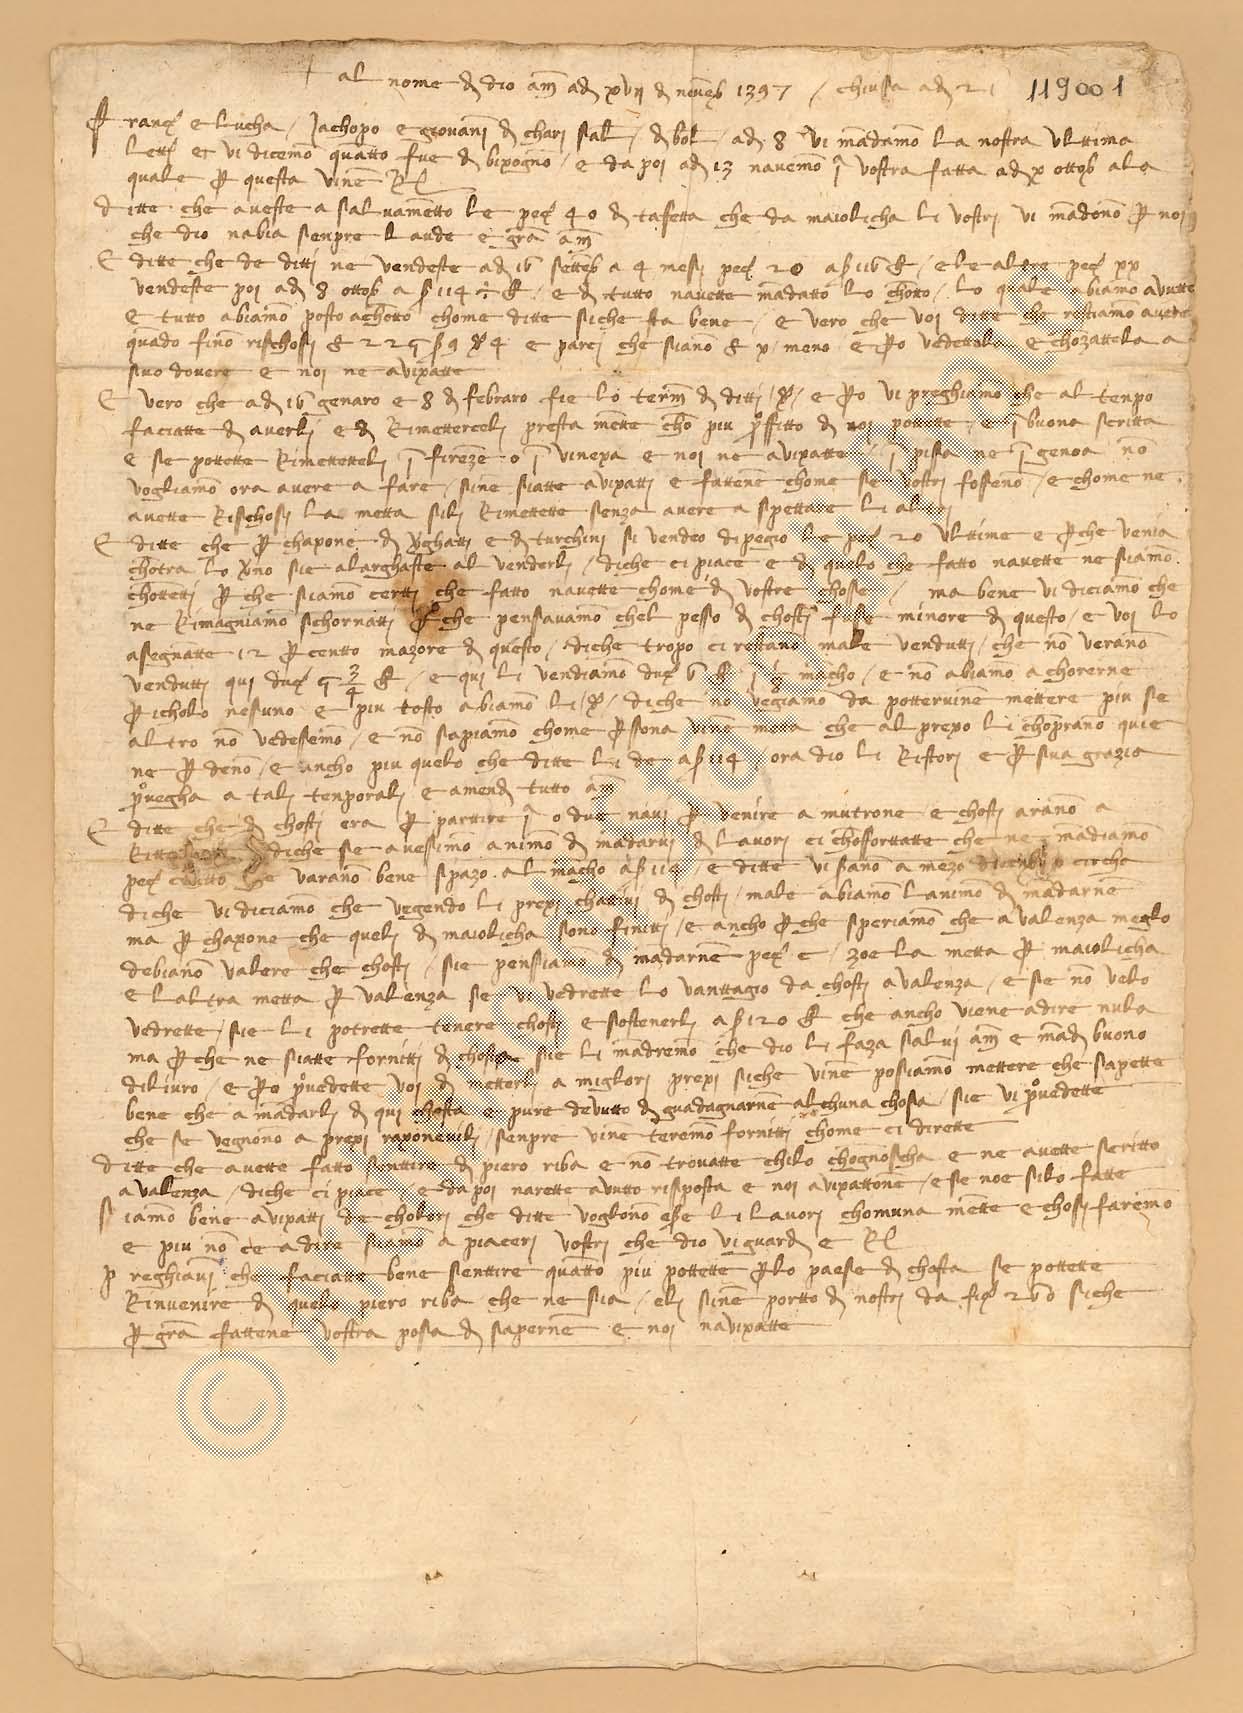 + al nome di dio am adì xvij di novēb 1397 / chiusa adì 21 119001
Francº e lucha / Jachopo e giovanni di chari sal / di bol / adì 8 vi mādamō la nostra ultima
letta et vi dicemō quanto fue di bixogno / e da poi adì 13 navemō j vostra fatta adì x ottob ala
quale p questa vinē R
ditte che aveste a salvamētto le peç 40 di tafetta che da maiolicha li vostri vi mādonō p noi
che dio nabia senpre laude e grā am
E ditte che de ditti ne vendeste adì 16 settēb a 4 mesi peç 20 a ß 116 £ / e le altre peç xx
vendeste poi adì 8 ottob a ß 114 £ / e di tutto navette mādatto lo chōtto / lo quale abiamo avutto
e tutto abiamō posto achōtto chome ditte siche sta bene / e vero che voi ditte che restiamō avere
quādo finō rischossi £ 225 ß 9 d 4 e parci che sianō £ x meno e po vedettelo e chōzattela a
suo dovere e noi ne avixatte
E vero che adì 16 genaro e 8 di febraro fie lo termē di ditti / e po vi preghiamo che al tenpo
faciatte di averli e di Rimetterceli presta mētte chō piu proffitto di noi pottette / e j buona scritta
e se pottette Rimettetteli j firēze o j vinexa e noi ne avixatte / j pisa ne j genoa nō
vogliamō ora avere a fare / sine siatte avixatti e fattenē chome se vostri fossenō / e chome ne
avette Rischossi la metta sili Rimettette senza avere aspettare li altri
E ditte che p chaxone di e di turchini si vendeo di pegio le peç 20 ultime e pche venia
chōtra lo sie alarghaste al venderli / diche ci piace e di quelo che fatto navette ne siamō
chōttetti p che siamō certti che fatto navette chome di vostre chosse / ma bene vi diciamō che
ne Rimagniamō schornatti pº che pensavamō chel pesso di chosti fuse minore di questo / e voi lo
asegnatte 12 p centto mazore di questo / diche tropo ci restano male vendutti / che nō veranō
vendutti qui duç 5 3/4 £ / e qui li vendiamō duç 6 £ j macho / e nō abiamō a chorerne
pricholo nesuno e piu tosto abiamō li / diche nō vegiamō da potteruinē mettere piu se
altro nō vedessimo / e nō sapiamō chome psona vinē metta che al prexo li chopranō qui e
ne p denō / e ancho piu quelo che ditte li de a ß 114 / ora dio li Ristori e p sua grazia
provegha a tali tenporali e amendi tutto am
E ditte che di chosti era p parttire j o due navi p venire a mutrone e chosti aranō a
diche se avessimo animō di mādarvi di lavori ci chōfforttatte che ne mādiamō
peç che varanō bene spazo al mācho a ß 114 / e ditte vi sianō a mezo dicēbre o circha
diche vi diciamo che vegendo li prexi chativi di chosti / male abiamō lanimō di mādarnē
ma p chaxone che queli di maiolicha sonō finitti / e ancho pche speriamō che a valenza meglo
debianō valere che chosti / sie pensiamo di mādarnē peç c / zoe la metta p maiolicha
e laltra metta p valenza se vi vedrette lo vanttagio da chosti a valenza / e se nō velo
vedrette / sie li potrette tenere chosti e sostenerli a ß 120 £ che ancho viene adire nula
ma pche ne siatte fornitti di chosta sie li mādremō che dio li faza salvi am e mādi buono
diliuro / e po provedette voi di metterli a migliori prexi siche vinē possiamō mettere che sapette
bene che a mādarli di qui chosta e pure devutto di guadagnarnē alchuna chosa / sie vi provedette
che se vegnono a prexi raxonevili / senpre vinē teremō fornitti chome ci dirette
ditte che avette fatto senttire di piero riba e nō trovatte chilo chognoscha e ne avette scritto
a valenza / diche ci piace / e da poi narette avutto risposta e noi avixattone / e se noe silo fatte
siamō bene avixatti de cholori che ditte voglono ese li lavori chomuna mētte e chossi faremō
e piu nō ce a dire siamō a piaceri vostri che dio vi guardi e R
preghiavi che faciatte bene senttire quātto piu pottette plo paese di chosta se pottette
Rinvenire di quelo piero riba che ne sia / eli sinē portto di nostri da fiç 260 siche
p grā fattene vostra possa di sapernē e noi navixatte